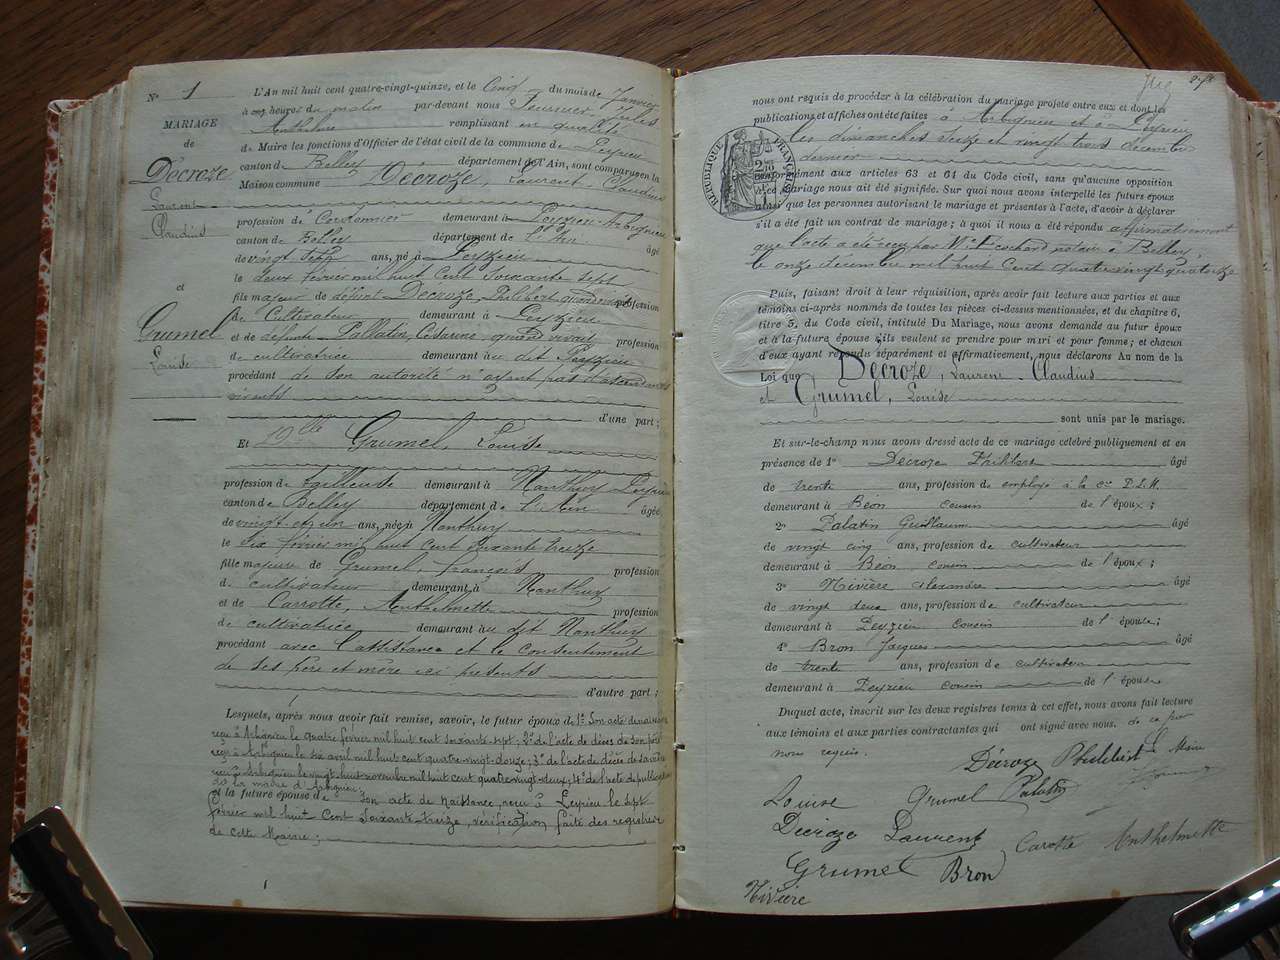 N° 1
MARIAGE
de
Décroze
Laurent
Claudius
et
Grumel
Louise
L'An mil huit cent quatre-vingt-quinze, et le Cinq du mois de Janvier
à heures du matin par-devant nous Fournier Jules
Anthelme remplissant en qualité
de Maire les fonctions d'Officier de l'état civil de la commune de Peyrieu
canton de Belley département de l'Ain, sont comparus en la
Maison commune Décroze, Laurent, Claudius
profession de Cantonnier demeurant à Peyzieu-Arbignieu
canton de Belley département de l'Ain âgé
de vingt sept ans, né à Peyzieu
le deux février mil huit Cent Soixante sept
fils majeur de défunt Décroze, Philibert, quand vivait profession
de Cultivateur demeurant à Peyzieu
et de défunte Pallatin, Césarine, quand vivait profession
de cultivatrice demeurant au dit Peyzieu
procédant de son autorité n'ayant pas d'ascendants
vivants
d'une part;
Et Mlle Grumel, Louise
profession de tailleuse demeurant à Nanthuy Peyrieu
canton de Belley département de l'Ain âgée
de vingt-et-un ans, née à Nanthuy
le six février mil huit cent soixante treize
fille majeure de Grumel, françois profession
de cultivateur demeurant à Nanthuy
et de Carrotte, Anthelmette profession
de cultivatrice demeurant au dit Nanthuy
procédant avec l'assistance et le consentement
de ses père et mère ici présents
d'autre part;
Lesquels, après nous avoir fait remise, savoir, le futur époux de 1° Son acte de naissance
reçu à Arbignieu le quatre février mil huit cent soixante sept; 2° de l'acte de décès de son père
reçu à Arbignieu le six avril mil huit cent quatre-vingt-douze; 3° de l'acte de décès de sa mère
reçu à Arbignieu le vingt-huit novembre mil huit cent quatre-vingt-deux; 4° de l'acte de publication
de la mairie d'Arbignieu
et la future épouse de Son acte de Naissance, reçu à Peyrieu le sept
février mil huit Cent Soixante-treize, vérification faite des registres
de cette Mairie;
nous ont requis de procéder à la célébration du mariage projeté entre eux et dont les
publications et affiches ont été faites à Arbignieu et à Peyrieu
les dimanches seize et vingt trois décembre
dernier
RÉPUBLIQUE FRANÇAISE
conformément aux articles 63 et 64 du Code civil, sans qu'aucune opposition
à ce mariage nous ait été signifiée. Sur quoi nous avons interpellé les futurs époux
ainsi que les personnes autorisant le mariage et présentes à l'acte, d'avoir à déclarer
s'il a été fait un contrat de mariage; à quoi il nous a été répondu affirmativement
que l'acte a été reçu par Me notaire à Belley,
le onze décembre mil huit Cent quatre vingt quatorze
Puis, faisant droit à leur réquisition, après avoir fait lecture aux parties et aux
témoins ci-après nommés de toutes les pièces ci-dessus mentionnées, et du chapitre 6,
titre 5, du Code civil, intitulé Du Mariage, nous avons demandé au futur époux
et à la future épouse s'ils veulent se prendre pour mari et pour femme; et chacun
d'eux ayant répondu séparément et affirmativement, nous déclarons Au nom de la
Loi que Décroze, Laurent-Claudius
et Grumel, Louise
sont unis par le mariage.
Et sur-le-champ nous avons dressé acte de ce mariage célébré publiquement et en
présence de 1° Décroze Philibert âgé
de trente ans, profession de employé à la Cie P.L.M.
demeurant à Béon cousin de l'époux;
2° Palatin Guillaume âgé
de vingt cinq ans, profession de cultivateur
demeurant à Béon cousin de l'époux;
3° Nivière Alexandre âgé
de vingt deux ans, profession de cultivateur
demeurant à Peyzieu cousin de l'épouse;
4° Bron Jacques âgé
de trente ans, profession de cultivateur
demeurant à Peyrieu cousin de l'épouse
Duquel acte, inscrit sur les deux registres tenus à cet effet, nous avons fait lecture
aux témoins et parties contractantes qui ont signé avec nous. de ce par
nous requis.
Décroze Philibert Le Maire
Louise Grumel Palatin
Décroze Laurent Carotte Anthelmette
Grumel Bron
Nivière